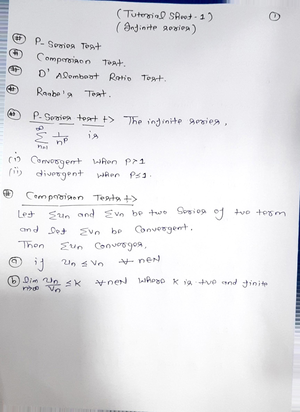 (Tutorial Sheet-1)
(Infinite series)
①
# P-Series Test
# Comparison Test.
# D'Alembert Ratio Test.
# Raabe's Test.
# P-Series test :-> The infinite series,
∞∑n=1 1/n^p is
(i) Convergent when P>1
(ii) divergent when P≤1.
# Comparison Tests :->
Let ∑un and ∑vn be two Series of +ve term
and let ∑vn be Convergent.
Then ∑un Converges,
(a) if un ≤ vn ∀ n∈N
(b) lim n→∞ un/vn ≤ K ∀ n∈N where K is +ve and finite